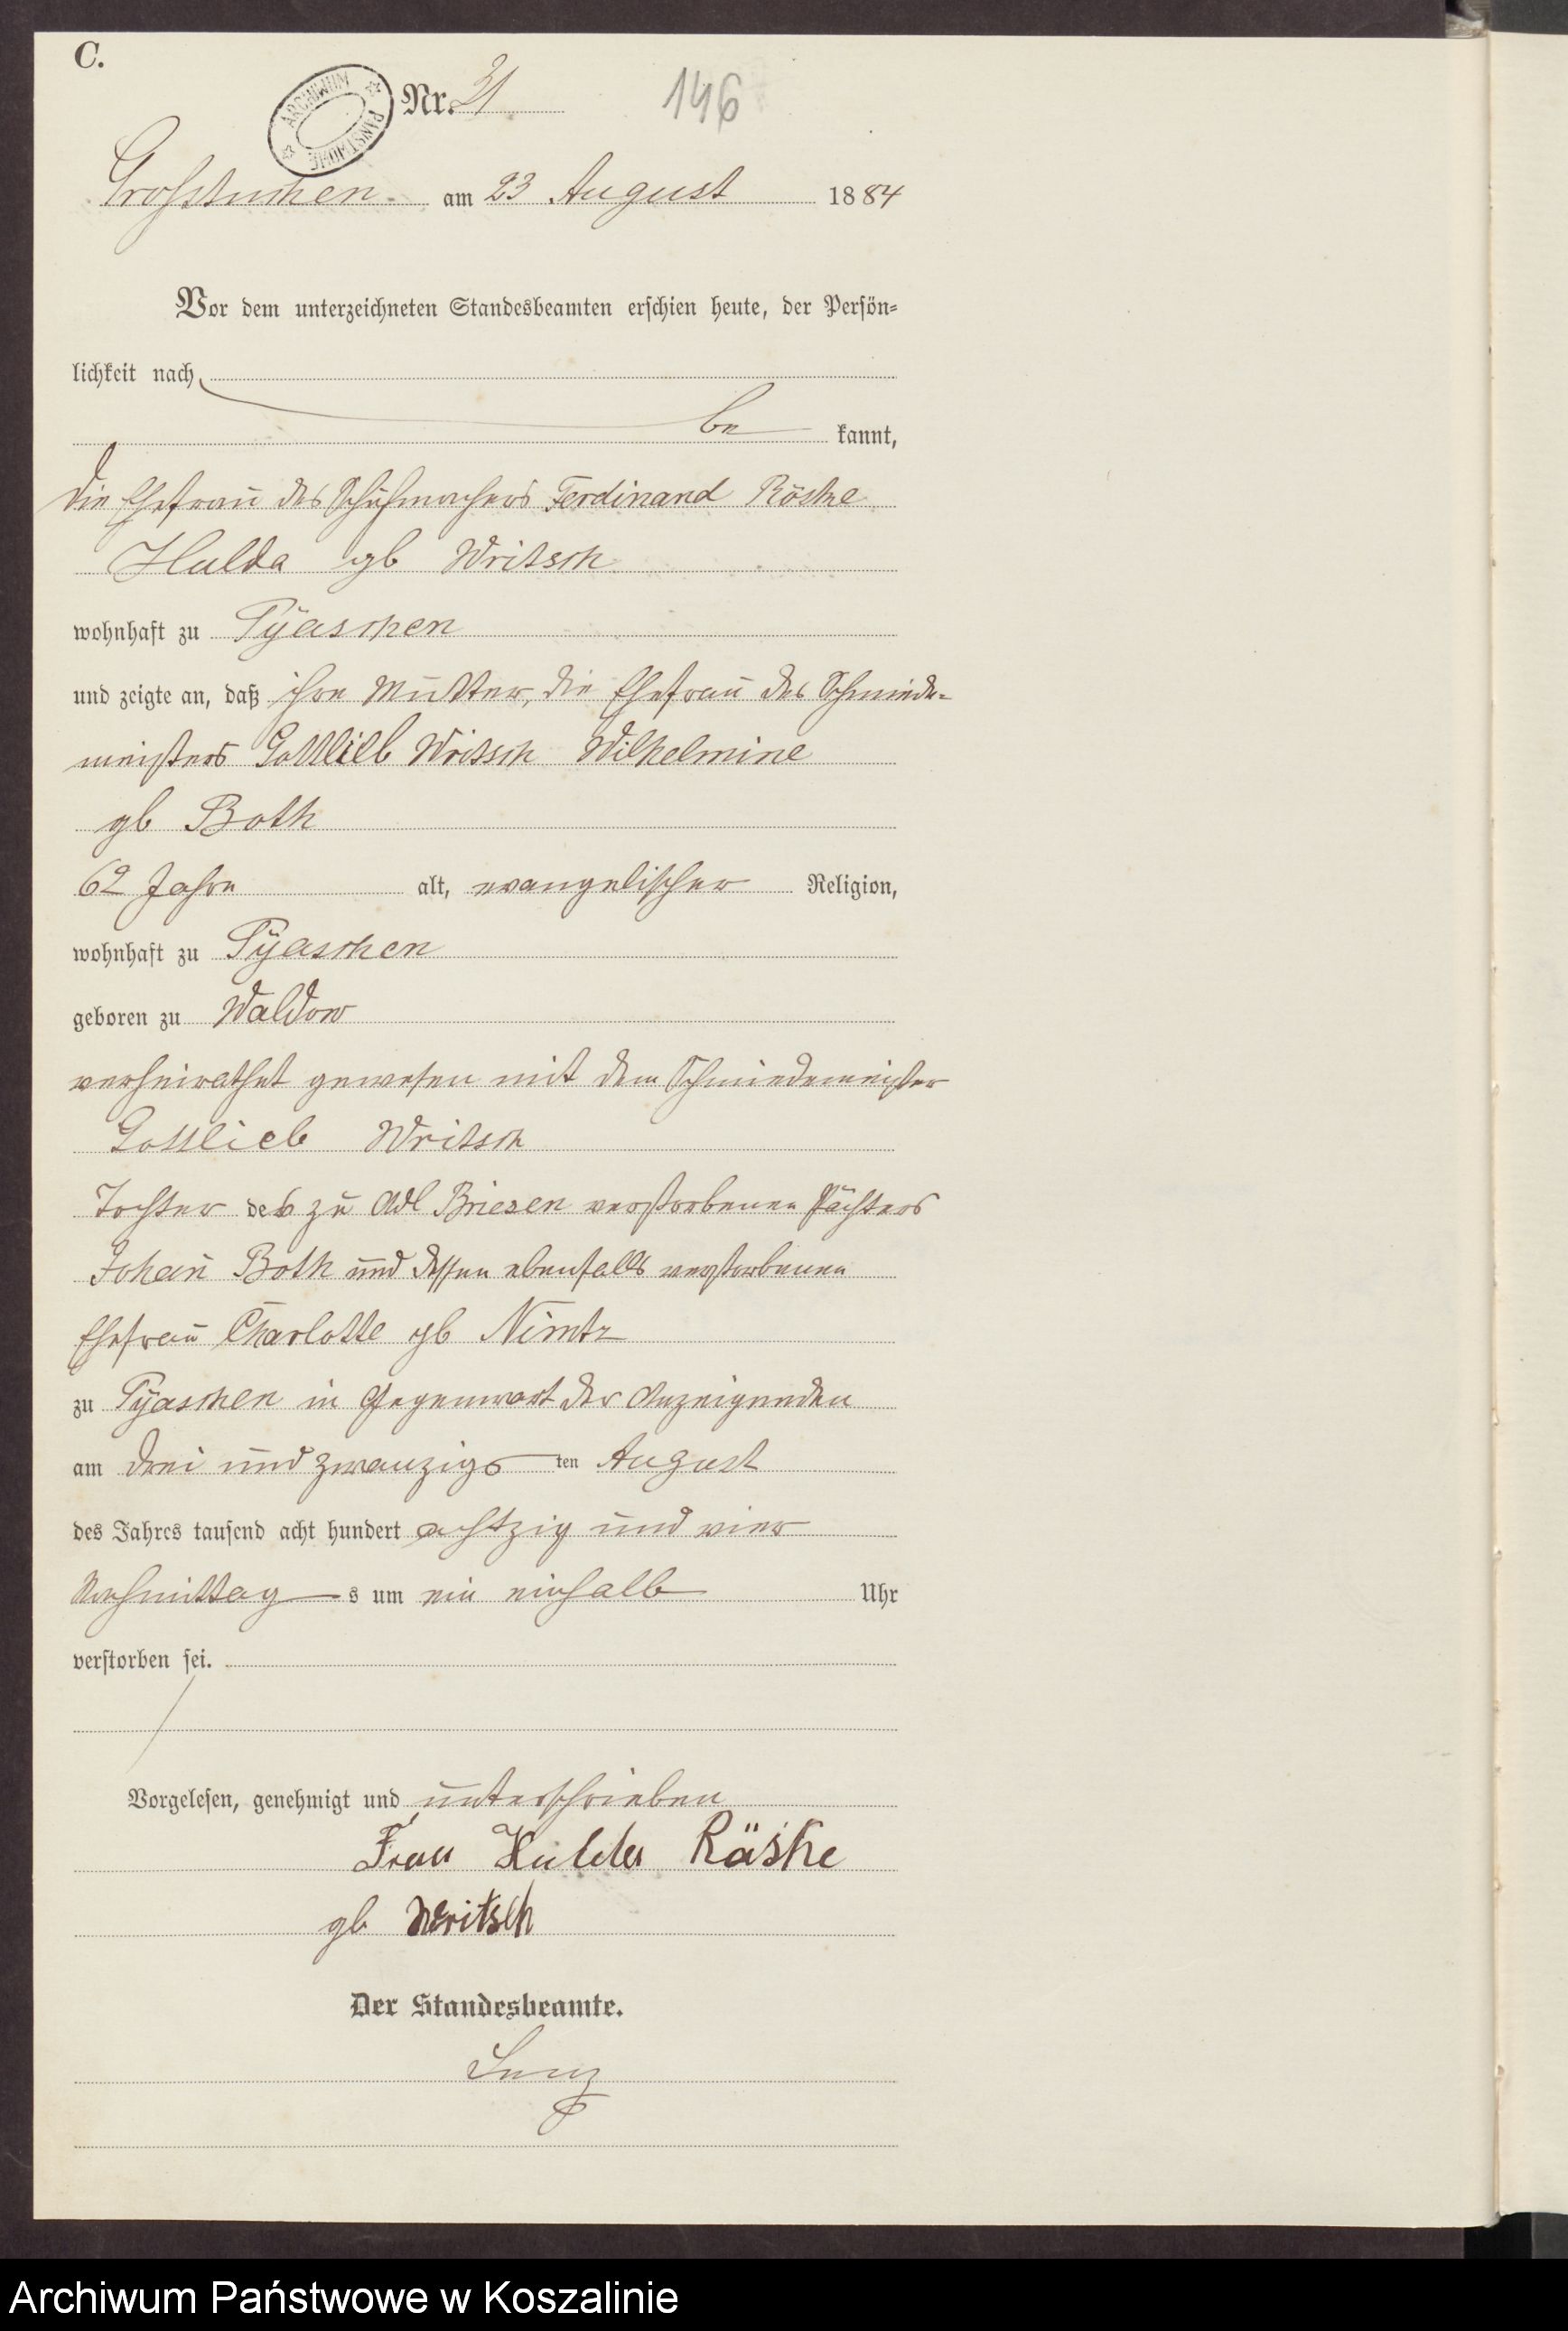 C.
ARCHIWUM PAŃSTWOWE
Nr. 31 146
Grosstuchen am 23 August 1884
Vor dem unterzeichneten Standesbeamten erschien heute, der Persön-
lichkeit nach
be kannt,
die Ehefrau des Schuhmachers Ferdinand Röske
Hulda gb Writsch
wohnhaft zu Pÿaschen
und zeigte an, daß ihre Mutter, die Ehefrau des Schmiede-
meisters Gottlieb Writsch Wilhelmine
gb Both
62 Jahre alt, evangelischer Religion,
wohnhaft zu Pÿaschen
geboren zu Waldow
verheirathet gewesen mit dem Schmiedemeister
Gottlieb Writsch
Tochter des zu Adl Briesen verstorbenen Pächters
Johan̄ Both und dessen ebenfalls verstorbenen
Ehefrau Charlotte gb Nimtz
zu Pÿaschen in Gegenwart der Anzeigenden
am drei und zwanzigs ten August
des Jahres tausend acht hundert achtzig und vier
Nachmittag s um ein einhalb Uhr
verstorben sei.
Vorgelesen, genehmigt und unterschrieben
Frau Hulda Räske
gb Writsch
Der Standesbeamte.
Archiwum Państwowe w Koszalinie